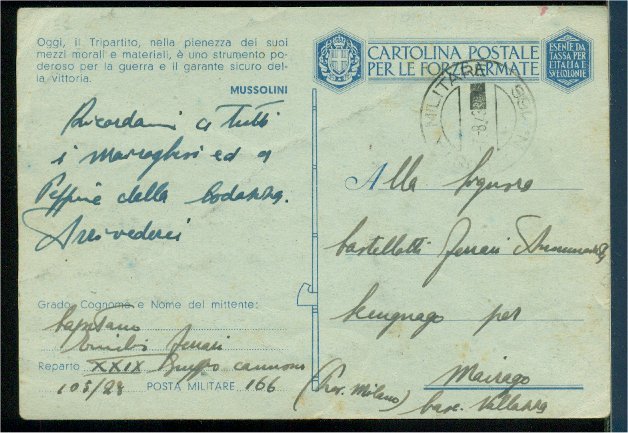 Oggi, il Tripartito, nella pienezza dei suoi
mezzi morali e materiali, è uno strumento po-
deroso per la guerra e il garante sicuro del-
la vittoria.
MUSSOLINI
Ricordami a tutti
i Mairaghesi ed a
Peppino della
Arrivederci
Grado, Cognome e Nome del mittente:
Capitano
Emilio Ferrari
Reparto XXIX Gruppo cannoni
105/28 POSTA MILITARE 166
CARTOLINA POSTALE
PER LE FORZE ARMATE
ESENTE DA
TASSA PER
L'ITALIA E
SVE COLONIE
MILITARE
Alla Signora
Castellotti Ferrari
per
Mairago
(Prov. Milano)